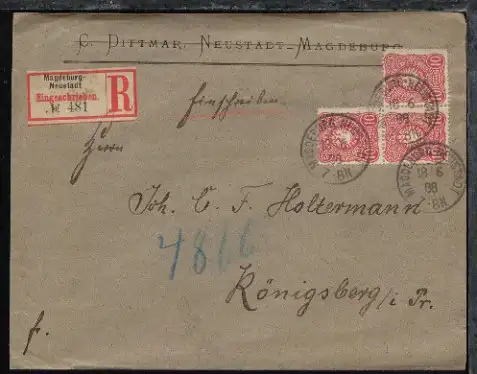 C. Dittmar, Neustadt-Magdeburg
Magdeburg-
Neustadt
Eingeschrieben.
№ 481
R
Einschreiben
10
10
10
MAGDEBURG-NEUSTADT
18 6
88
7-8N
Herrn
Joh. C. F. Holtermann
4866
Königsberg i/Pr.
fr.